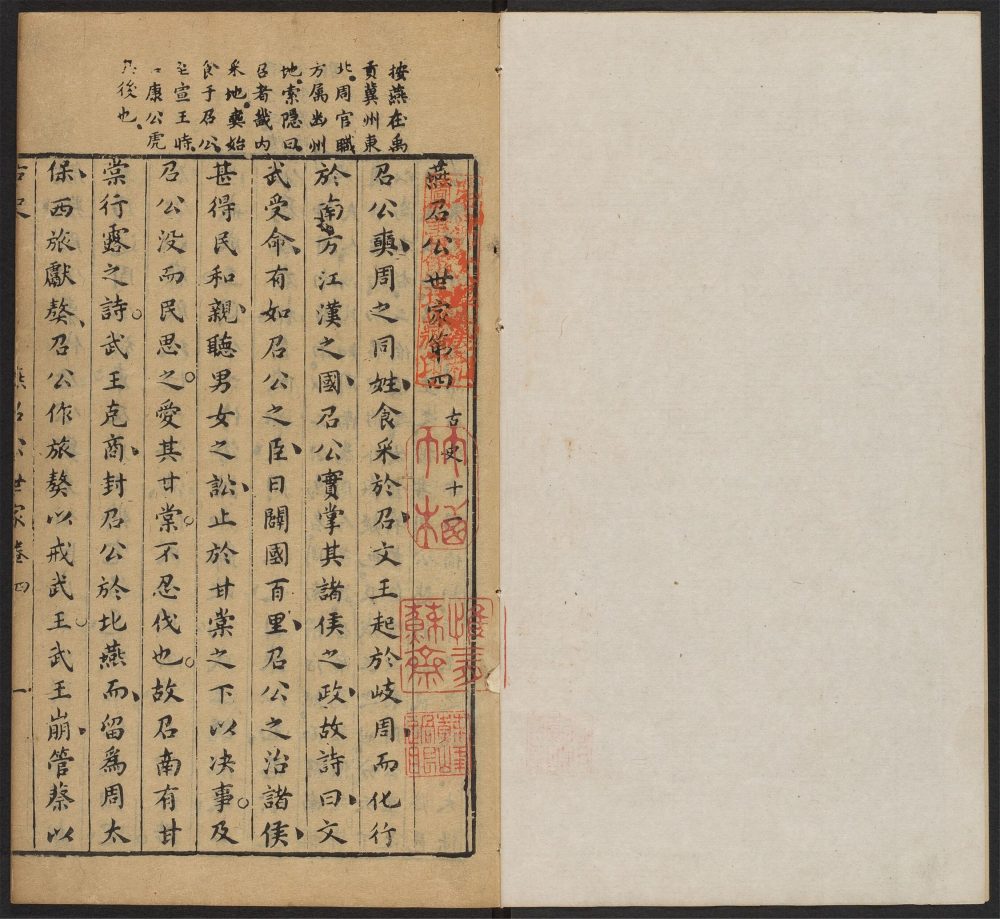 按燕在禹
貢冀州東
北周官職
方属幽州
地索隱曰
召者畿内
采地奭始
食于召公
宣王時
康公虎
後也
燕召公世家第四 古史十
召公奭周之同姓食采於召文王起於岐周而化行
於南方江漢之國召公實掌其諸侯之政故詩曰文
武受命有如召公之臣日闢國百里召公之治諸侯
甚得民和親聽男女之訟止於甘棠之下以决事及
召公没而民思之愛其甘棠不忍伐也故召南有甘
棠行露之詩武王克商封召公於北燕而留爲周太
保西旅獻獒召公作旅獒以戒武王武王崩管蔡以
古史 燕召公世家卷四 一
蘇齋